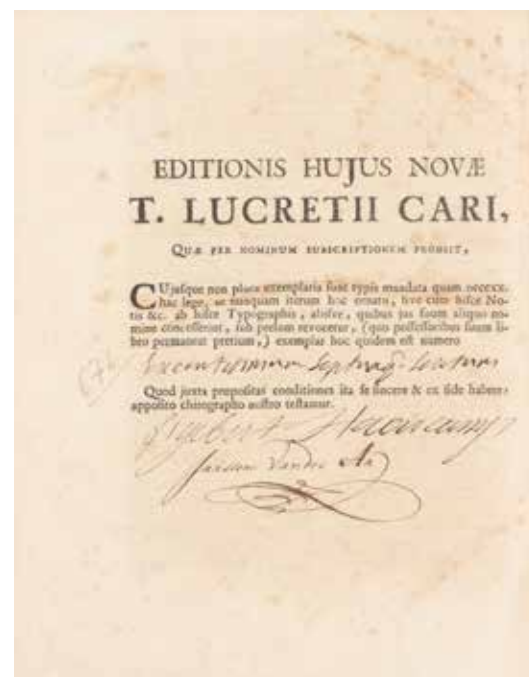 EDITIONIS HUJUS NOVÆ
T. LUCRETII CARI,
QUÆ PER NOMINUM SUBSCRIPTIONEM PRODIIT,
CUjusque non plura exemplaria sunt typis mandata quam
hac lege, ut nunquam iterum hoc ornatu, sive cum hisce No-
tis &c. ab hisce Typographis, aliisve, quibus jus suum aliquo no-
mine concesserint, sub prelum revocetur, (quo possessoribus suum li-
bro permaneat pretium,) exemplar hoc quidem est numero
Quod juxta propositas conditiones ita se sincere & ex fide habere,
apposito chirographo nostro testamur.
Janson Vander Aa